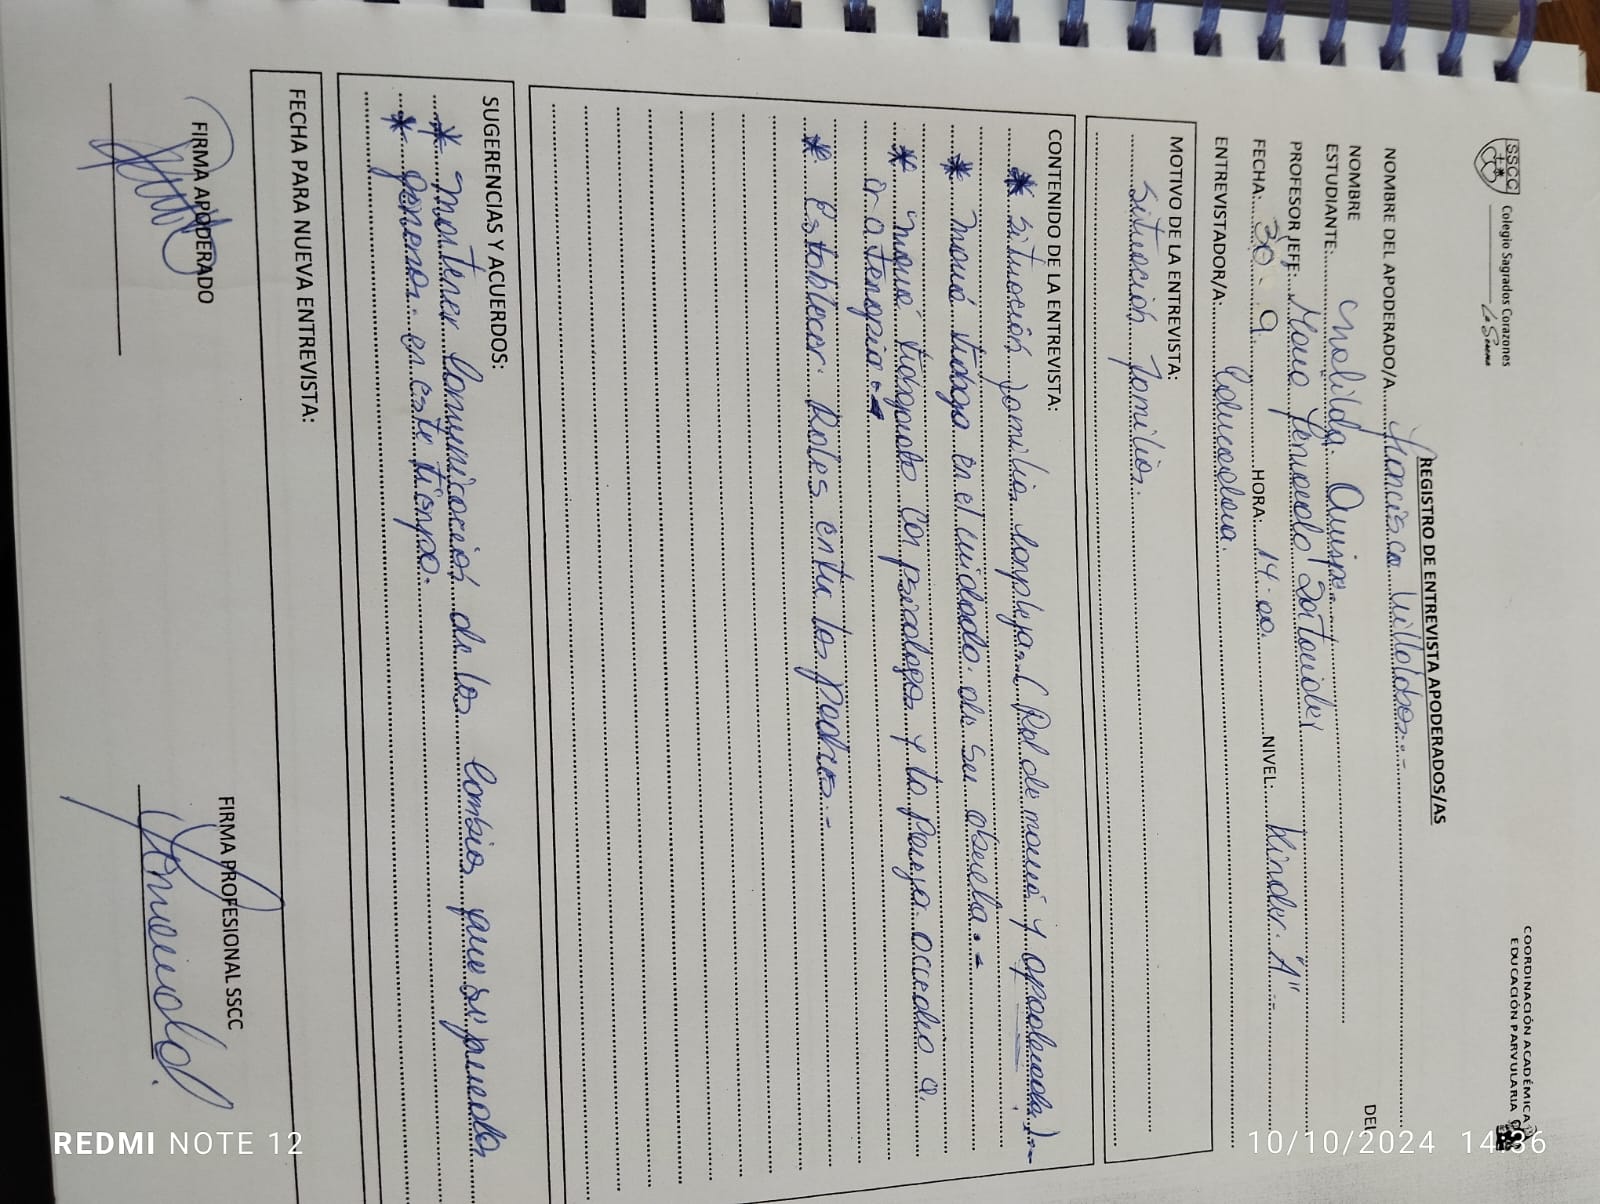 SSCC Colegio Sagrados Corazones
La Serena
COORDINACIÓN ACADÉMICA
EDUCACIÓN PARVULARIA
REGISTRO DE ENTREVISTA APODERADOS/AS
NOMBRE DEL APODERADO/A Francisca Villalobos.-
NOMBRE DEL
ESTUDIANTE: Quispe.
PROFESOR JEFE:
FECHA: 30 - 9 HORA: 14:00 NIVEL: Kinder "A".-
ENTREVISTADOR/A. Educadora.
MOTIVO DE LA ENTREVISTA:
Situación familiar.
CONTENIDO DE LA ENTREVISTA:
* Situación familiar compleja. ( Rol de mamá y apoderada ).-
* Mamá trabaja en el cuidado de su abuela.-
* Mamá trabajando con psicologa y la pareja accedio a
ir a terapia.-
* Establecer Roles entre los padres.-
SUGERENCIAS Y ACUERDOS:
* Mantener comunicación de los cambios que se puedan
* generar en este tiempo.
FECHA PARA NUEVA ENTREVISTA:
FIRMA APODERADO
FIRMA PROFESIONAL SSCC
REDMI NOTE 12
10/10/2024 14:36